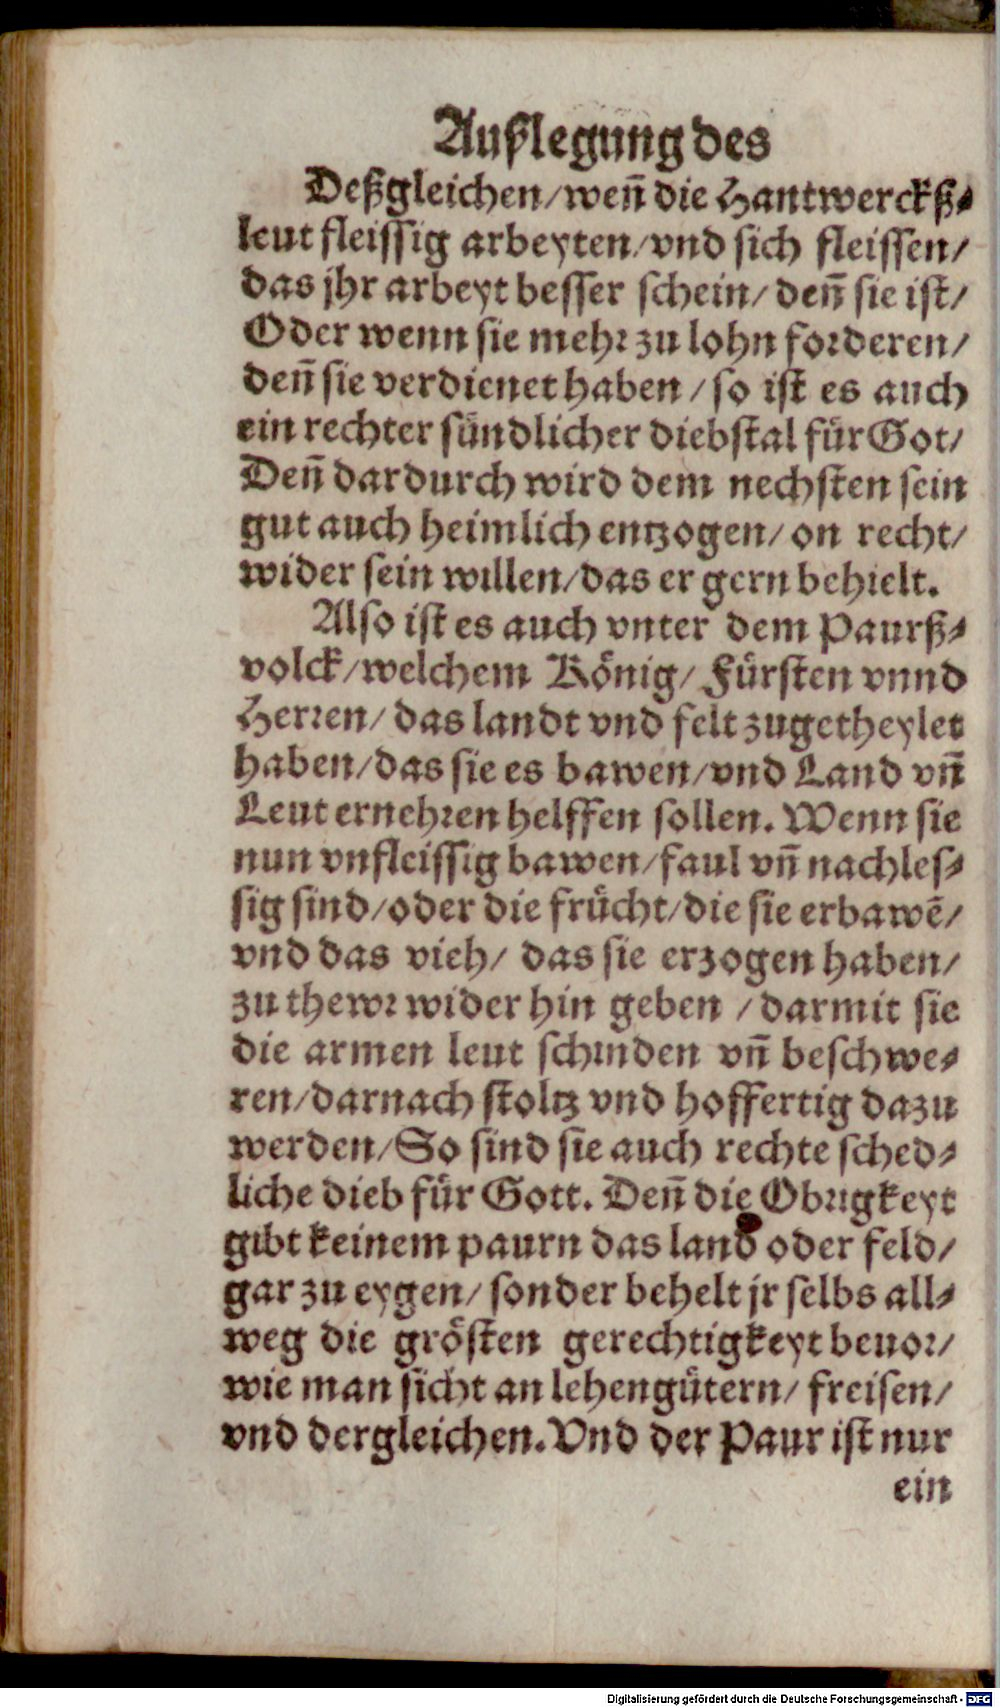 Außlegung des
Deßgleichen/ weñ die Hantwerckß⸗
leut fleissig arbeyten/ vnd sich fleissen/
das jhr arbeyt besser schein/ deñ sie ist/
Oder wenn sie mehr zu lohn forderen/
deñ sie verdienet haben / so ist es auch
ein rechter sündlicher diebstal für Got/
Deñ dardurch wird dem nechsten sein
gut auch heimlich entzogen/ on recht/
wider sein willen/ das er gern behielt.
Also ist es auch vnter dem Paurß⸗
volck/ welchem König/ Fürsten vnnd
Herren/ das landt vnd felt zugetheylet
haben/ das sie es bawen/ vnd Land vñ
Leut ernehren helffen sollen. Wenn sie
nun vnfleissig bawen/ faul vñ nachles⸗
sig sind/ oder die frücht/ die sie erbawẽ/
vnd das vieh/ das sie erzogen haben/
zu thewr wider hin geben / darmit sie
die armen leut schinden vñ beschwe⸗
ren/ darnach stoltz vnd hoffertig dazu
werden/ So sind sie auch rechte sched⸗
liche dieb für Gott. Deñ die Obrigkeyt
gibt keinem paurn das land oder feld/
gar zu eygen/ sonder behelt jr selbs all⸗
weg die grösten gerechtigkeyt beuor/
wie man sicht an lehengütern/ freisen/
vnd dergleichen. Vnd der Paur ist nur
ein
Digitalisierung gefördert durch die Deutsche Forschungsgemeinschaft - DFG